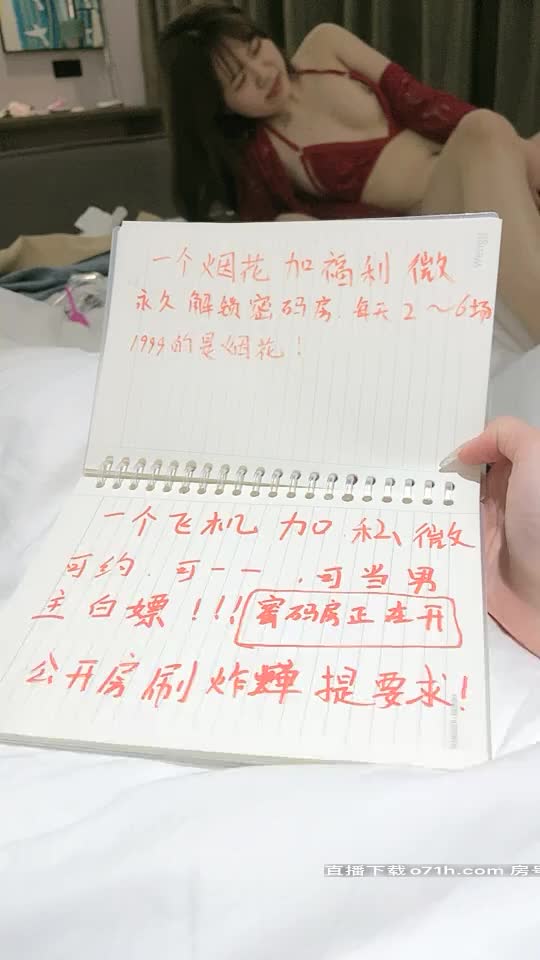 Wengu
一个烟花 加福利微
永久解锁密码房.每天2～6场
1999的是烟花！
一个飞机 加 私微
可约.可一一.可当男
主白嫖！！！密码房正在开
公开房刷炸弹提要求！
直播下载o71h.com 房号